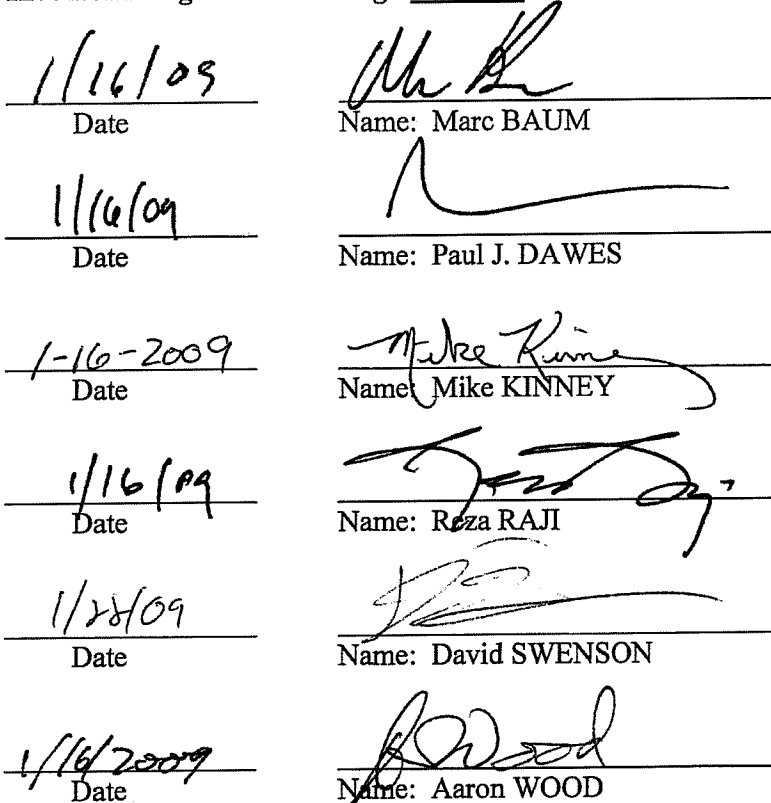 1/16/09
Date Name: Marc BAUM
1/16/09
Date Name: Paul J. DAWES
1-16-2009 Mike Kinney
Date Name: Mike KINNEY
1/16/09
Date Name: Reza RAJI
1/22/09
Date Name: David SWENSON
1/16/2009 Wood
Date Name: Aaron WOOD